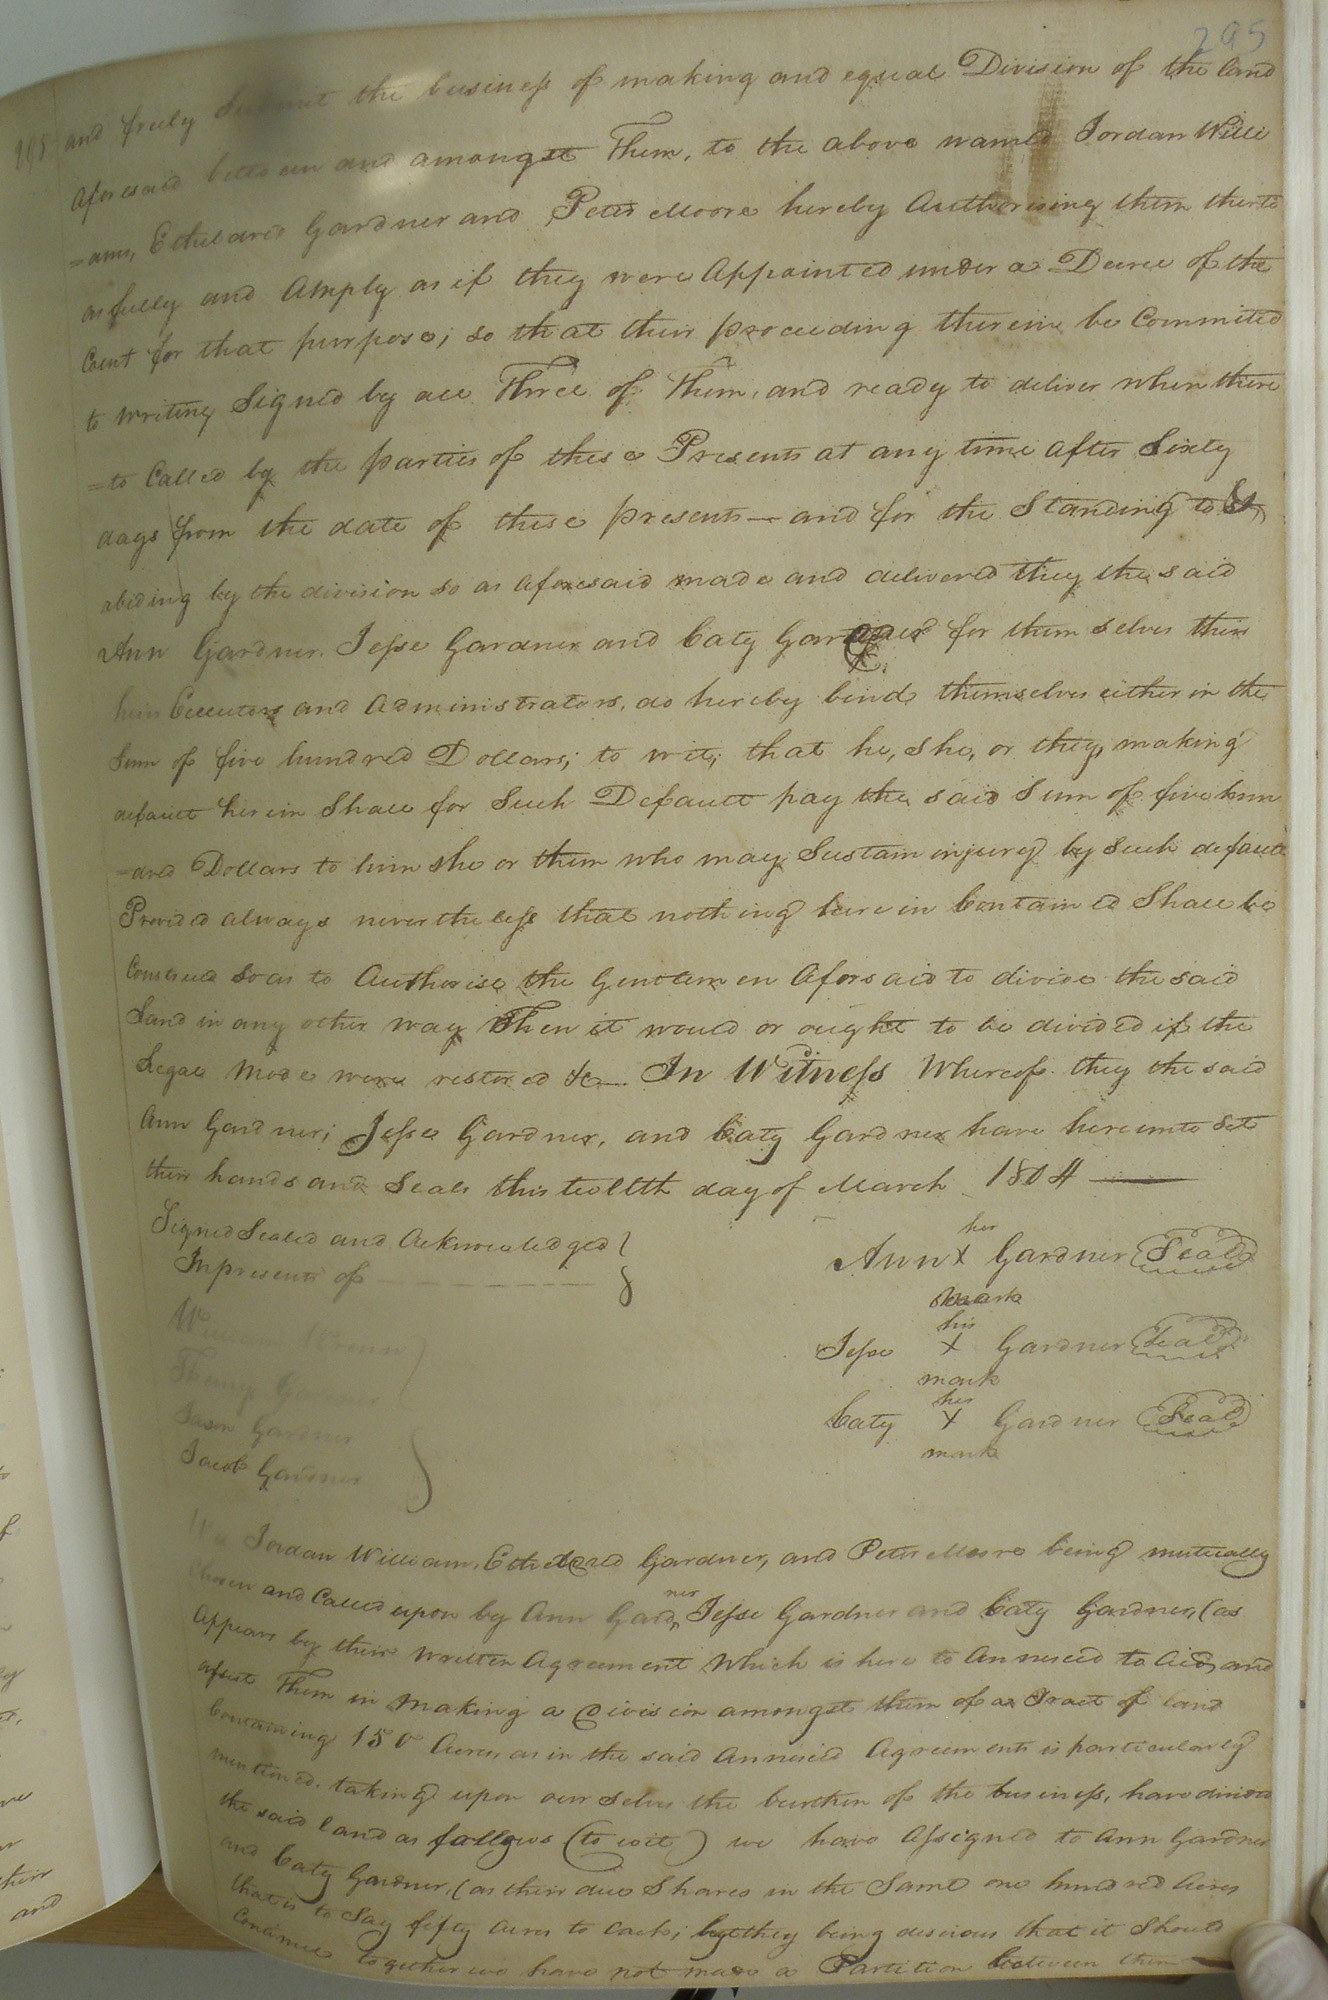 295
and truly Submit the business of making and equal Division of the land
Aforesaid between and amongst Them, to the above named Jordan Willi
=ams, Etheldred Gardner and Peter Moore hereby Authorising them thereto
as fully and Amply as if they were Appointed under a Decree of the
Court for that purpose; so that their proceeding therein be Committed
to writing Signed by all Three of Them, and ready to deliver when there
=to Called by the parties of these Presents at any time after Sixty
days from the date of these presents — and for the Standing to &
abiding by the division so as aforesaid made and delivered they the said
Ann Gardner. Jesse Gardner and Caty Gardner for them selves their
heirs Executors and Administrators, do hereby bind themselves either in the
Sum of five hundred Dollars; to wit; that he, she, or they, making
default herein Shall for Such Default pay the said Sum of five hun
=dred Dollars to him she or them who may Sustain injury by Such default
Provided always never the less that nothing herein Contained Shall be
Construed so as to Authorise the Gentlemen Aforsaid to divide the said
Land in any other way Then it would or ought to be divided if the
Legal Mode were restored &c — In Witness Whereof they the said
Ann Gardner; Jesse Gardner, and Caty Gardner have hereunto Set
their hands and Seals this twelfth day of March 1804 —
Signed Sealed and Acknowledged }
In presents of — — — — }
her
Ann X Gardner Seal
mark
his
Jesse X Gardner Seal
mark
her
Caty X Gardner Seal
mark
Gardner
Jacob Gardner
We Jordan William, Etheldred Gardner, and Peter Moore being mutually
Chosen and Called upon by Ann Gardner Jesse Gardner and Caty Gardner, (as
Appears by their written Agreement which is here to Annexed to Aid, and
assist Them in making a Division amongst them of a Tract of land
Containing 150 Acres, as in the said Annexed Agreements is particularly
mentioned. taking upon our Selves the burthen of the business, have divided
the said land as follows (to wit) we have Assigned to Ann Gardner
and Caty Gardner, (as their due Shares in the Same one hundred Acres
that is to Say fifty acres to each; but they being desirous that it Should
Continue together we have not made a Partition between them